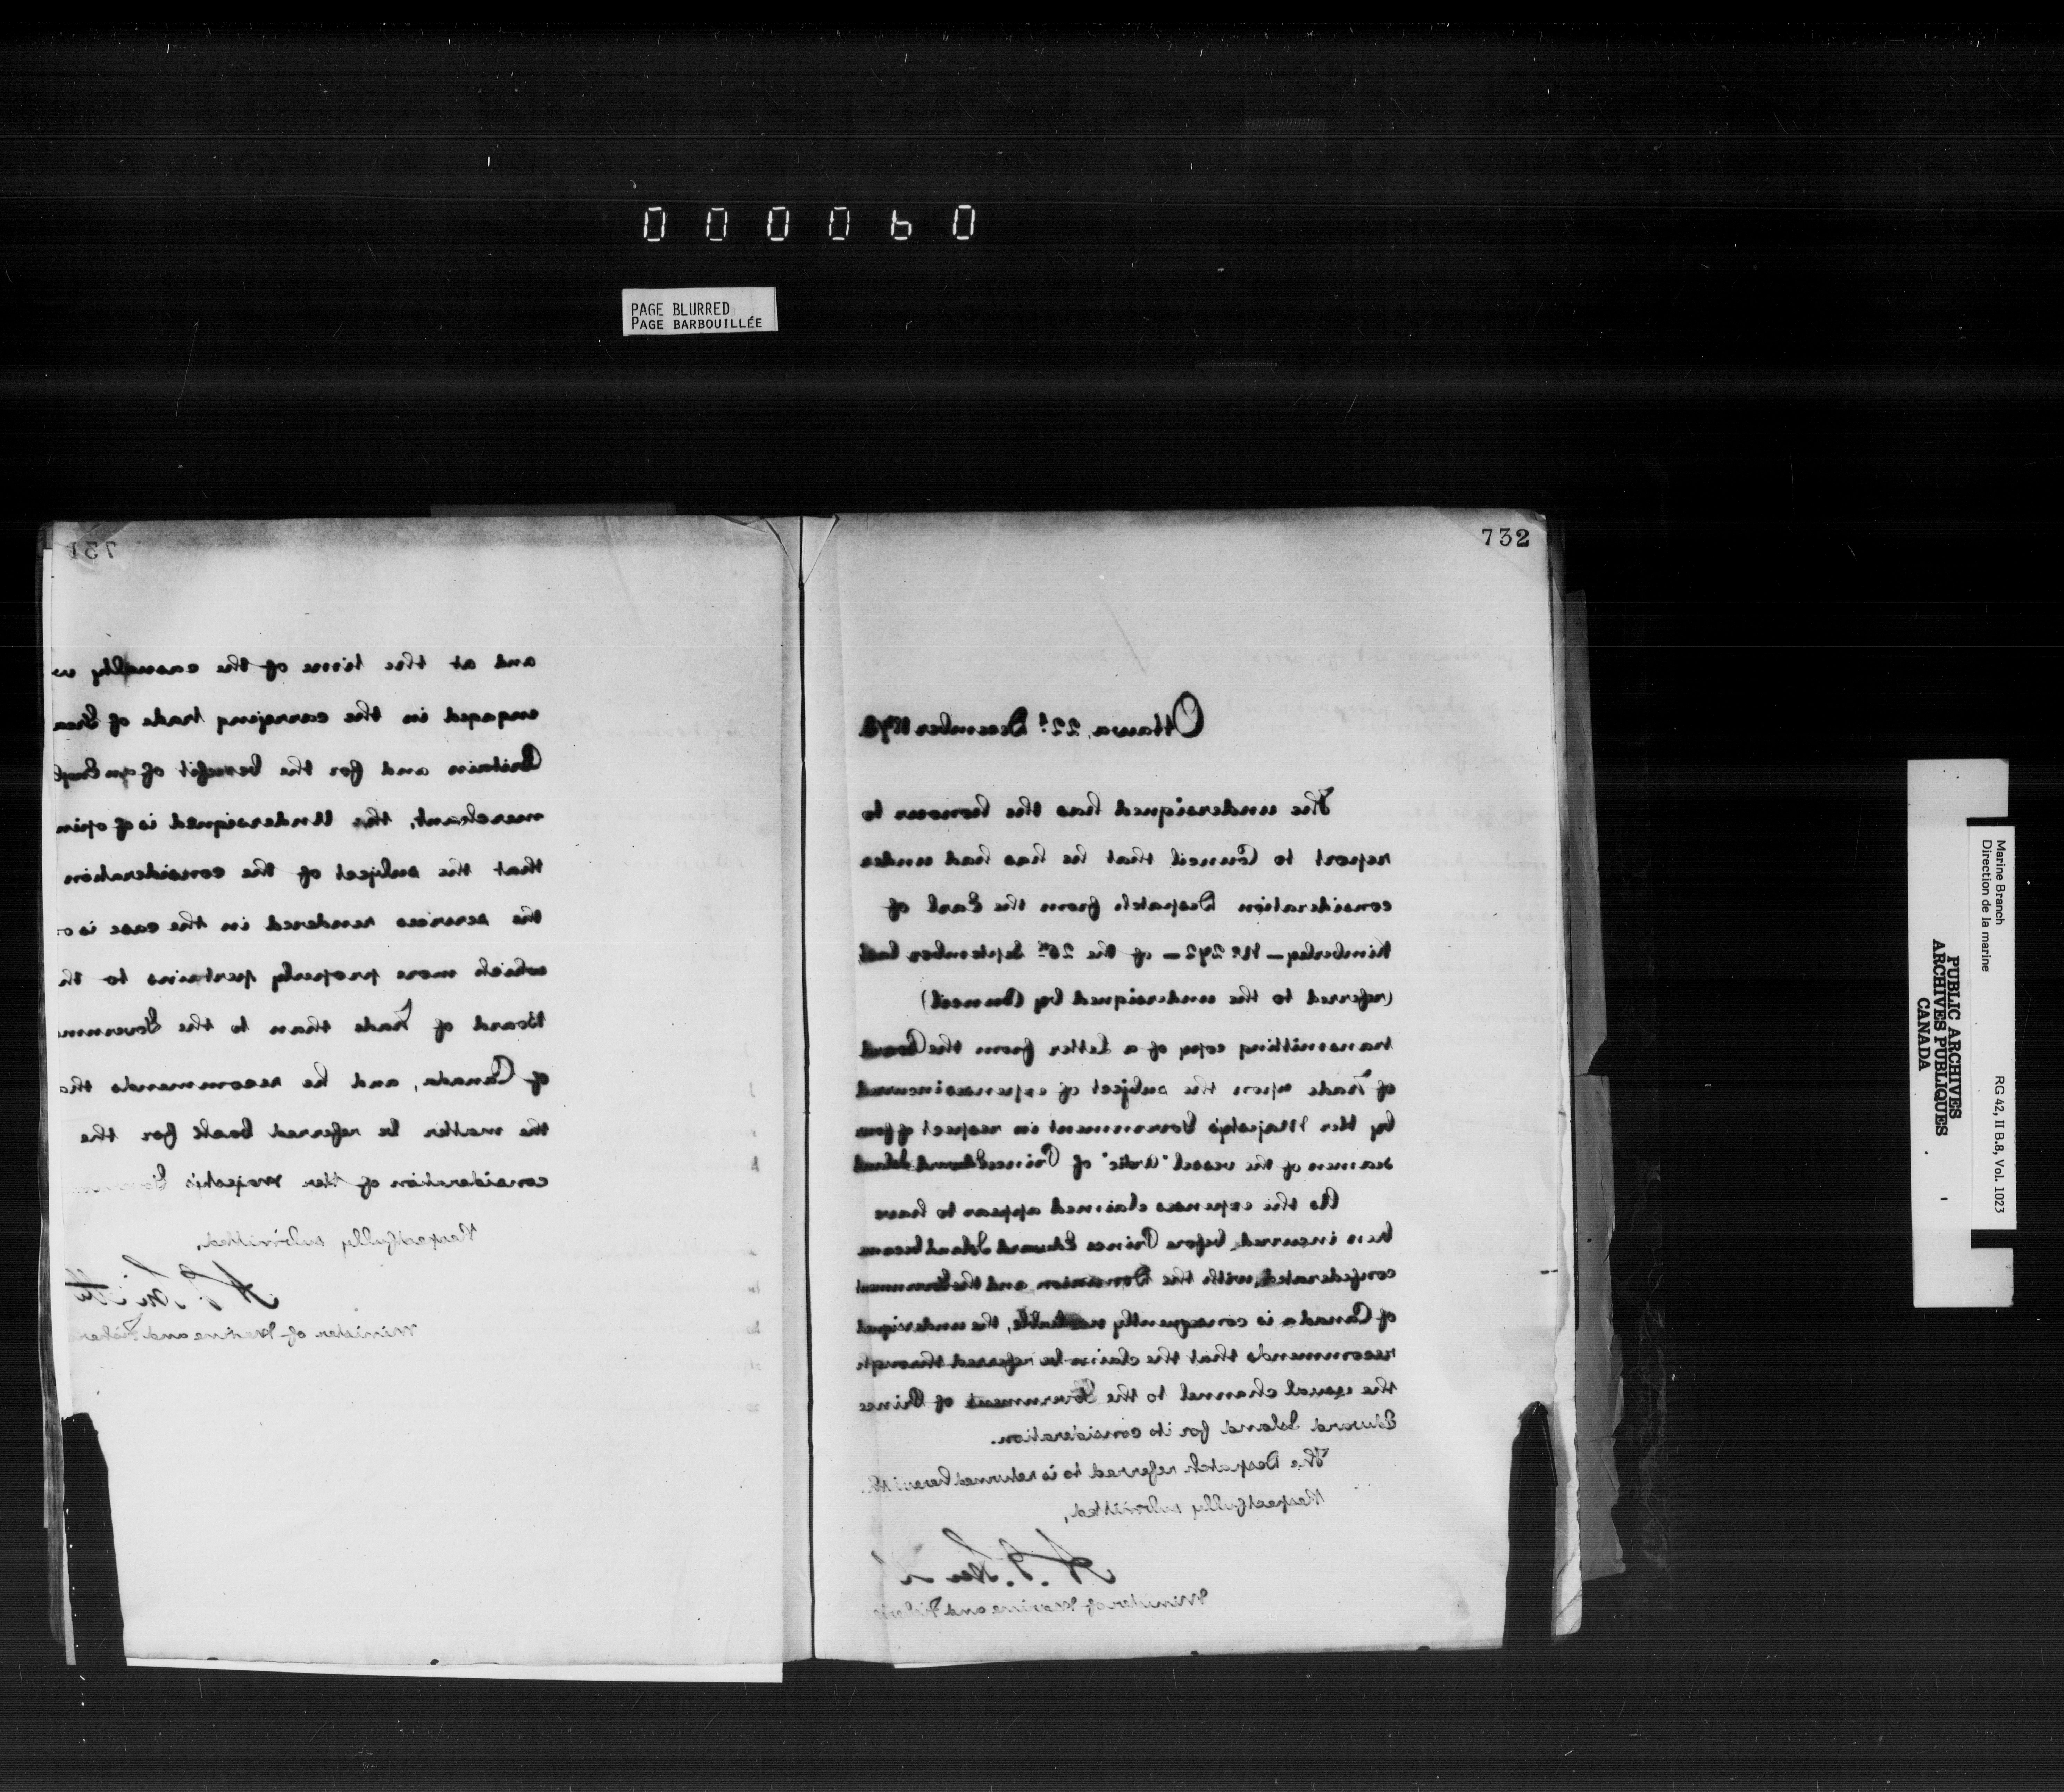 000060
PAGE BLURRED
PAGE BARBOUILLÉE
731
and at the time of the casualty
engaged in the carrying trade of
Britain and for the benefit of an
merchant, the Undersigned is of
that the subject of the consideration
the services rendered in the case is
which more properly pertains to
Board of Trade than to the
of Canada, and he recommends
the matter be referred back for the
consideration of Her Majesty's
Respectfully submitted,
A J Smith
Minister of Marine and
732
Ottawa, 22d December 1873.
The undersigned has the honour to
report to Council that he has had under
consideration Despatch from the Earl of
Kimberley - No 292 - of the 26th September last
(referred to the undersigned by Council)
transmitting copy of a letter from the Board
of Trade upon the subject of expenses incurred
by Her Majesty's Government in respect of four
seamen of the vessel "Artic" of Prince Edward Island
As the expenses claimed appear to have
been incurred before Prince Edward Island became
confederated with the Dominion and the Government
of Canada is consequently not liable, the undersigned
recommends that the claim be referred through
the usual channel to the Government of Prince
Edward Island for its consideration.
The Despatch referred to is returned herewith.
Respectfully submitted,
A. J. Smith
Minister of Marine and Fisheries
Marine Branch
Direction de la marine
RG 42, II B.8, Vol. 1023
PUBLIC ARCHIVES
ARCHIVES PUBLIQUES
CANADA